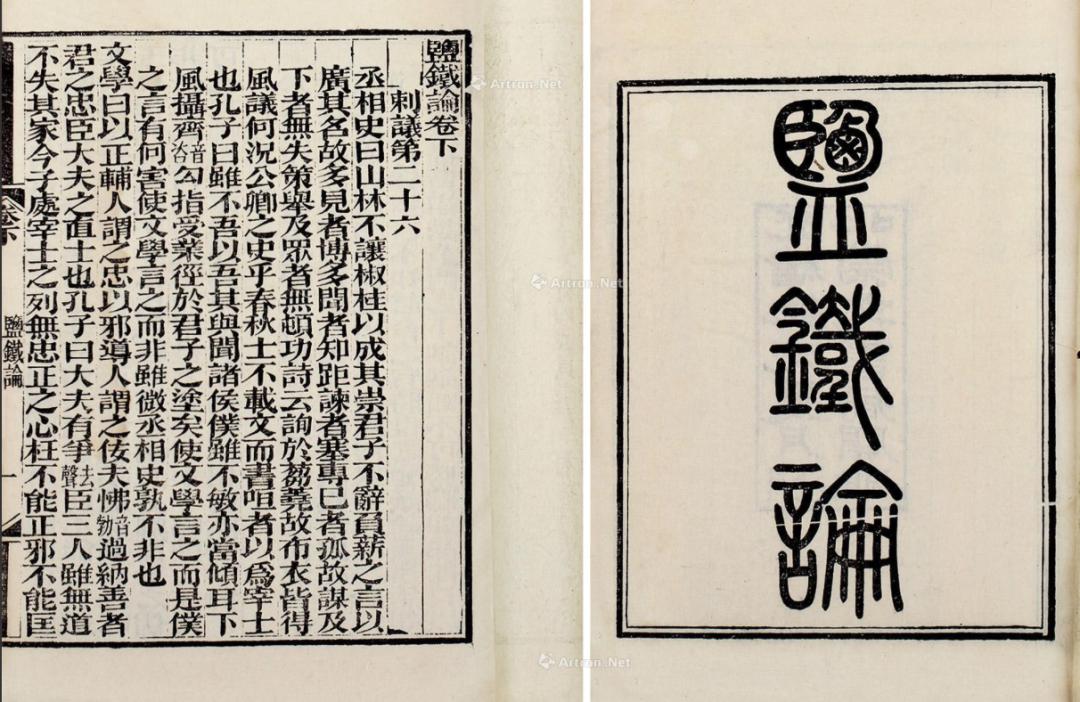 鹽鐵論卷下
刺議第二十六
丞相史曰山林不讓椒桂以成其崇君子不辭負薪之言以
廣其名故多見者博多聞者知距諫者塞專己者孤故謀及
下者無失策舉及眾者無頓功詩云詢於芻蕘故布衣皆得
風議何況公卿之史乎春秋士不載文而書咺者以爲宰士
也孔子曰雖不吾以吾其與聞諸侯僕雖不敏亦當傾耳下
風攝齊音咨勾指受業徑於君子之塗矣使文學言之而是僕
之言有何害使文學言之而非雖微丞相史孰不非也
文學曰以正輔人謂之忠以邪導人謂之佞夫怫音勃過納善者
君之忠臣大夫之直士也孔子曰大夫有爭去聲臣三人雖無道
不失其家今子處宰士之列無忠正之心枉不能正邪不能匡
卷下
鹽鐵論
一
鹽鐵論
Artron.Net
Artron.Net
Artron.Net